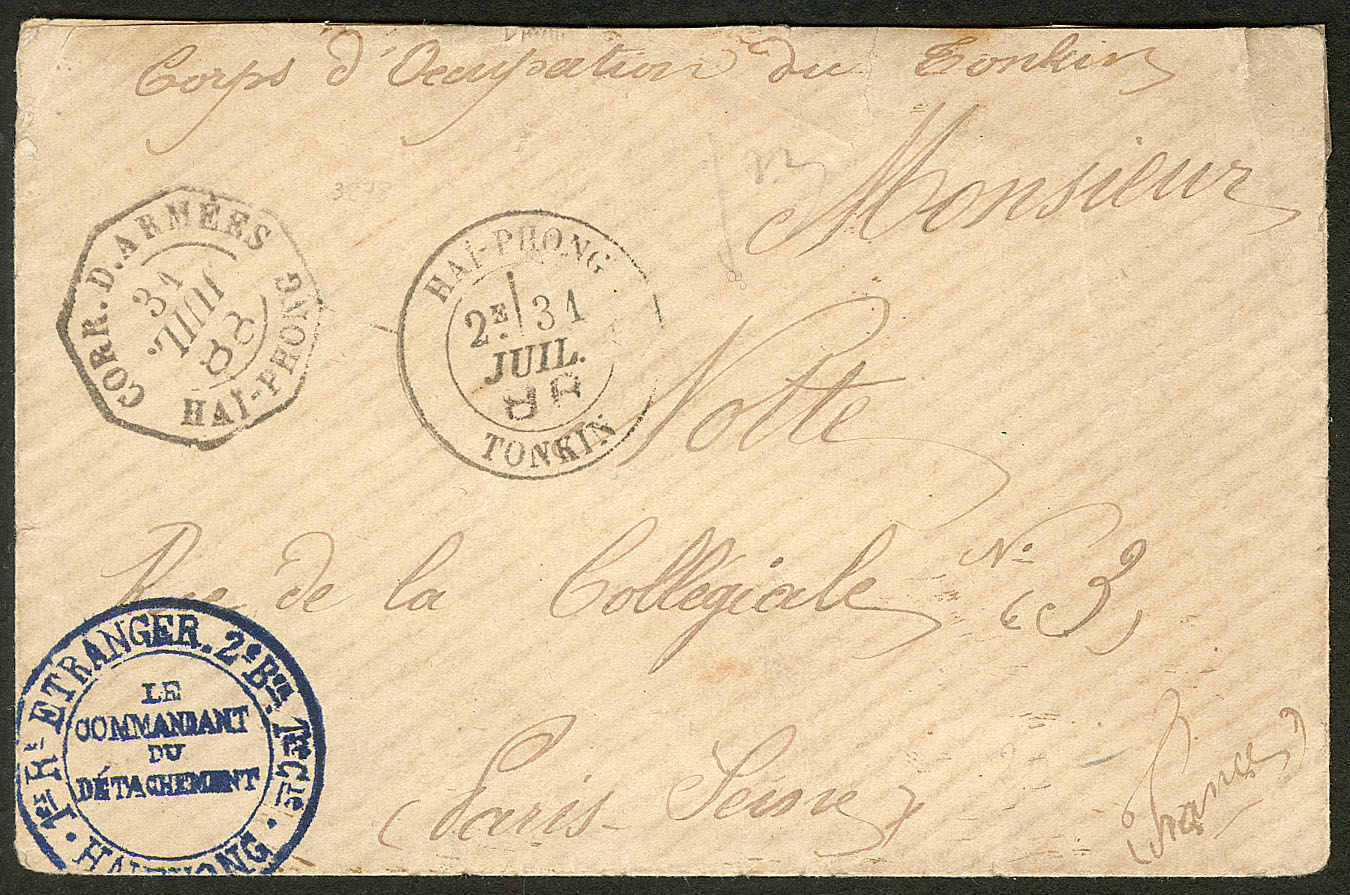 Corps d'Occupation du Tonkin
Monsieur
CORR. D. ARMÉES
31
JUIL.
88
HAÏ-PHONG
HAÏ-PHONG
2E 31
JUIL.
88
TONKIN
Notte
Rue de la Collégiale No 3
1ER Rt ETRANGER. 2e Bon 1re Cie
LE
COMMANDANT
DU
DÉTACHEMENT
HAIPHONG
(Paris-Seine)
(France)